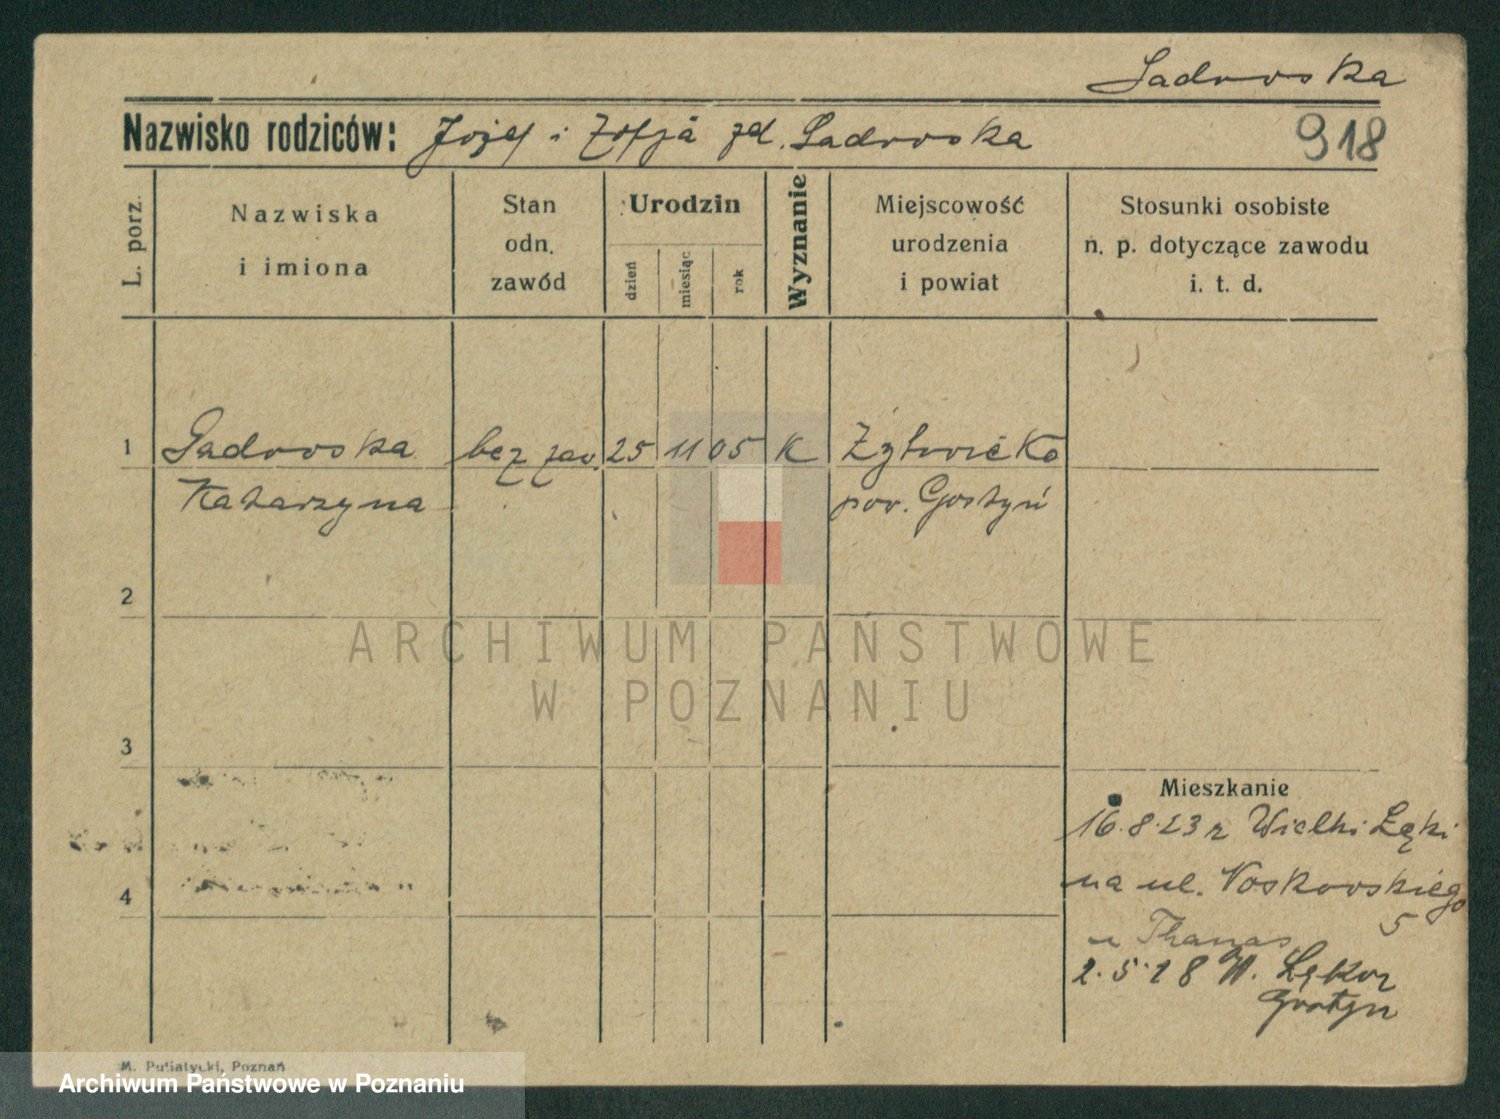 Sadowska
Nazwisko rodziców: Józef i Zofja zd. Sadowska 918
L. porz.
Nazwiska
i imiona
Stan
odn.
zawód
Urodzin
dzień
miesiąc
rok
Wyznanie
Miejscowość
urodzenia
i powiat
Stosunki osobiste
n. p. dotyczące zawodu
i. t. d.
1 Sadowska bez zaw. 25 11 05 K
Katarzyna pow. Gostyń
2
3
4
Mieszkanie
16.8.23 z Wielki Łęki
na ul. Noskowskiego
5
u
2.5.28 W.
Gostyn
M. Putiatycki, Poznań
ARCHIWUM PAŃSTWOWE
W POZNANIU
Archiwum Państwowe w Poznaniu